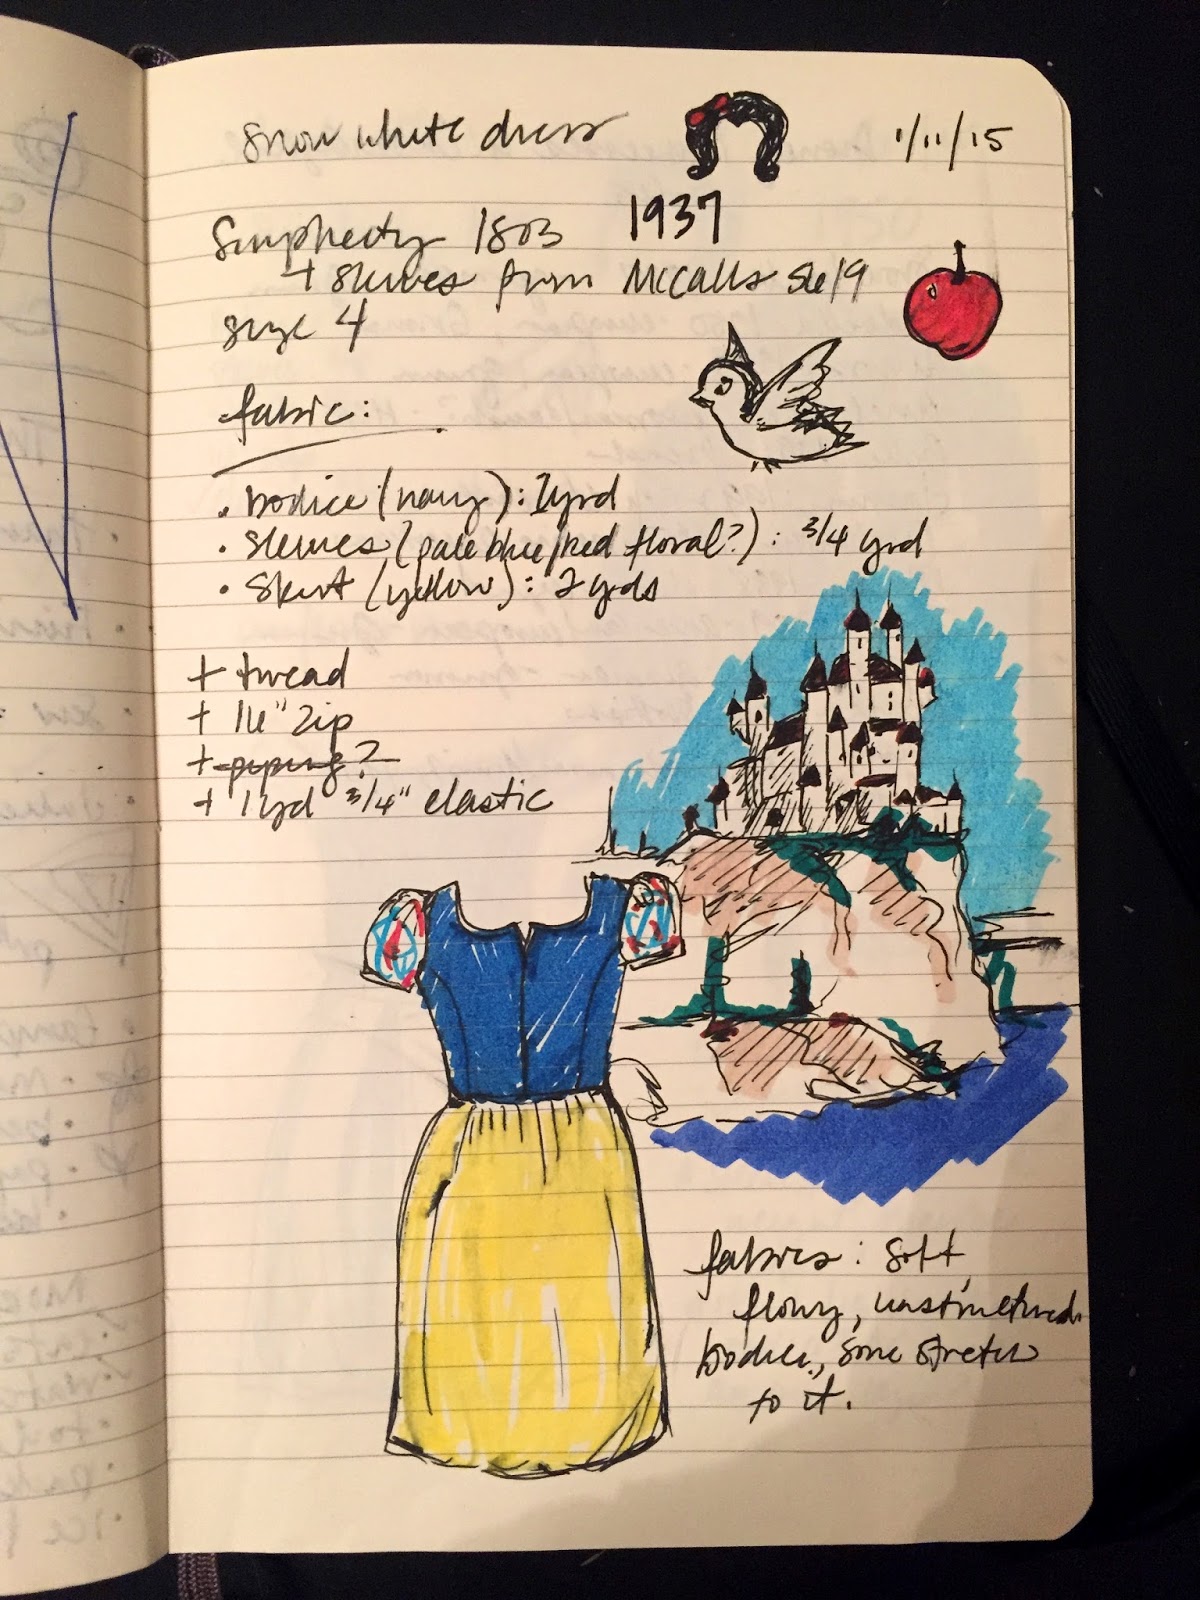 Snow white dress
1/11/15
1937
Simplicity 1803
+ sleeves from McCalls
size 4
fabric:
• bodice (navy): 1yrd
• sleeves (pale blue/red floral?): 3/4 yrd
• skirt (yellow): 2 yrds
+ thread
+ 16" zip
+ piping?
+ 1yd 3/4" elastic
fabrics: soft,
flowy, unstructured
bodice, some stretch
to it.